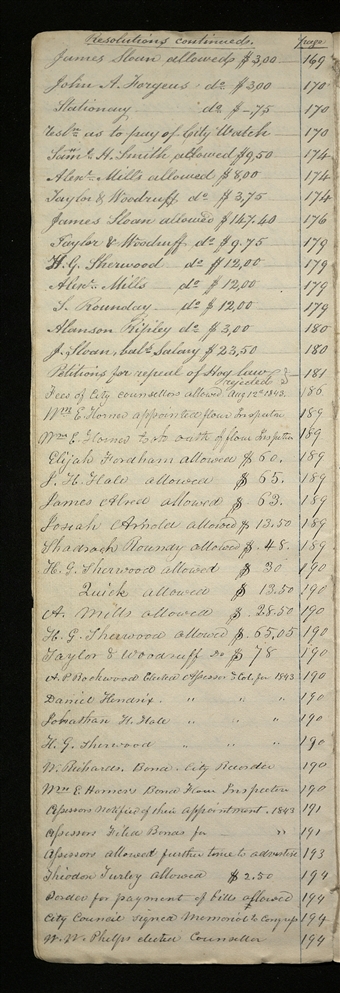 Resolutions continued. page
James Sloan allowed $3,00 169
John A. Forgeus do $3,00 170
Stationary do $-75 170
Resln as to pay of City Watch 170
Saml. H. Smith allowed $9,50 174
Alexr. Mills allowed $8,00 174
Taylor & Woodruff do $3,75 174
James Sloan allowed $147.40 176
Taylor & Woodruff do $9.75 179
H. G. Sherwood do $12,00 179
Alexr. Mills do $12,00 179
S. Rounday do $12,00 179
Alanson Ripley do $3,00 180
J. Sloan, balc Salary $23,50 180
Petitions for repeal of Hog law rejected 181
Fees of City counsellors allowed Aug 12th 1843. 186
Wm E Horner appointed flour Inspector 189
Wm E. Horner oath of flour Inspector 189
Elijah Fordham allowed $60. 189
J. H. Hale allowed $65. 189
James Alred allowed $63. 189
Josiah Arnold allowed $13.50 189
Shadrach Roundy allowed $.48. 189
H. G. Sherwood allowed $30 190
Quick allowed $13.50 190
A. Mills allowed $.28.50 190
H. G. Sherwood allowed $.65,05 190
Taylor & Woodruff do $78 190
A. P. Rockwood Elected Assessor & Col. for 1843 190
Daniel Hendrix. " " " 190
Jonathan H. Hale " " " 190
H. G. Sherwood " " " 190
W. Richards Bond. City Recorder 190
Wm E. Horner's Bond Flour Inspector 190
Assessors Notified of their appointment. 1843 191
Assessors Filed Bond for — " 191
Assessors allowed further time to advertise 193
Theodore Turley allowed $2.50 194
Order for payment of bills allowed 194
City Council signed Memorial to Congress 194
W. W. Phelps elected Counsellor 194